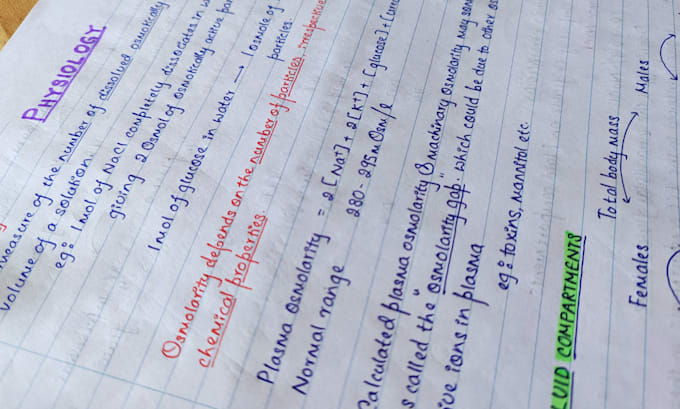 PHYSIOLOGY
measure of the number of dissolved osmotically
volume of a solution.
eg: 1 mol of NaCl completely dissociates in w
giving 2 Osmol of osmotically active par
1 mol of glucose in water → 1 osmole of
particles.
Osmolarity depends on the number of particles, irrespective
chemical properties.
Plasma osmolarity = 2 [Na+] + 2 [K+] + [glucose] + [ure
Normal range 280-295 mOsm/l
Calculated plasma osmolarity & machinary osmolarity may som
s called the "osmolarity gap" which could be due to other os
ive ions in plasma
eg: toxins, mannitol etc.
LUID COMPARTMENTS
Total body mass
Females Males